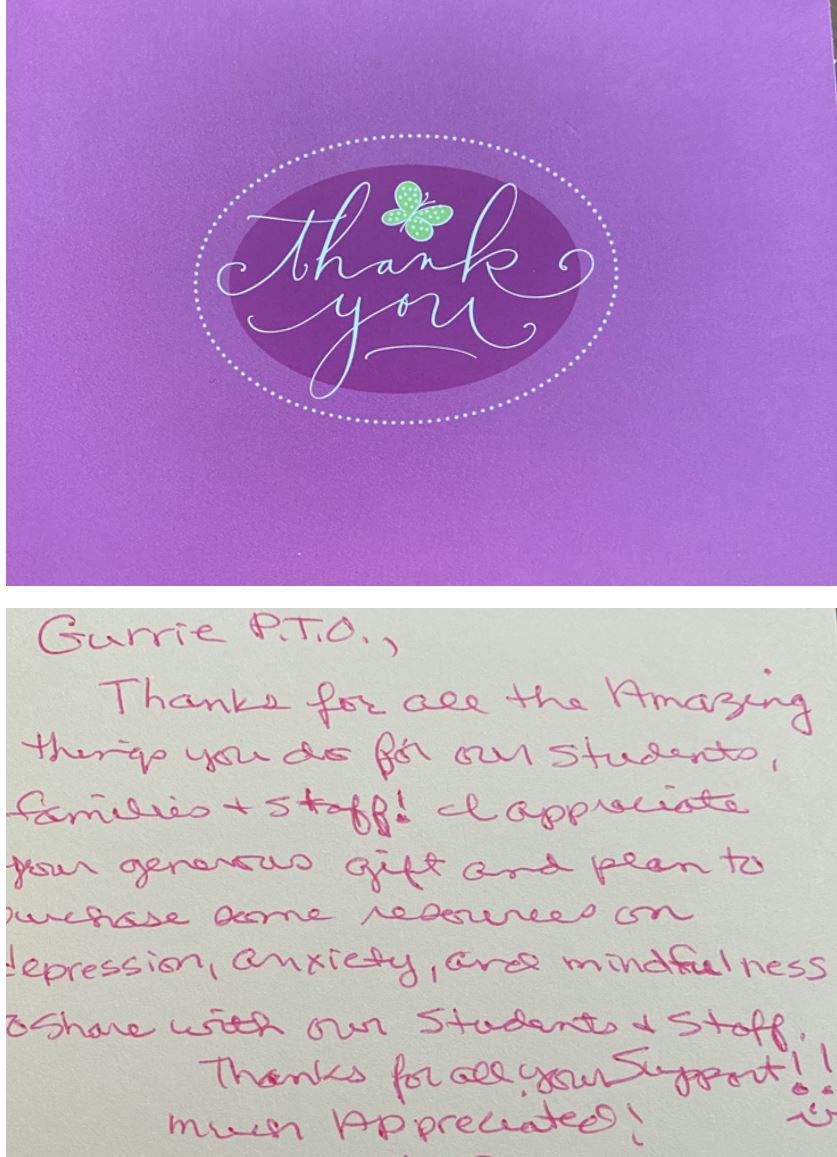 thank
you
Gurrie P.T.O.,
Thanks for all the Amazing
things you do for our students,
families + staff! I appreciate
your generous gift and plan to
purchase some resources on
depression, anxiety, and mindfulness
to share with our students + staff.
Thanks for all your Support!!
much Appreciated!